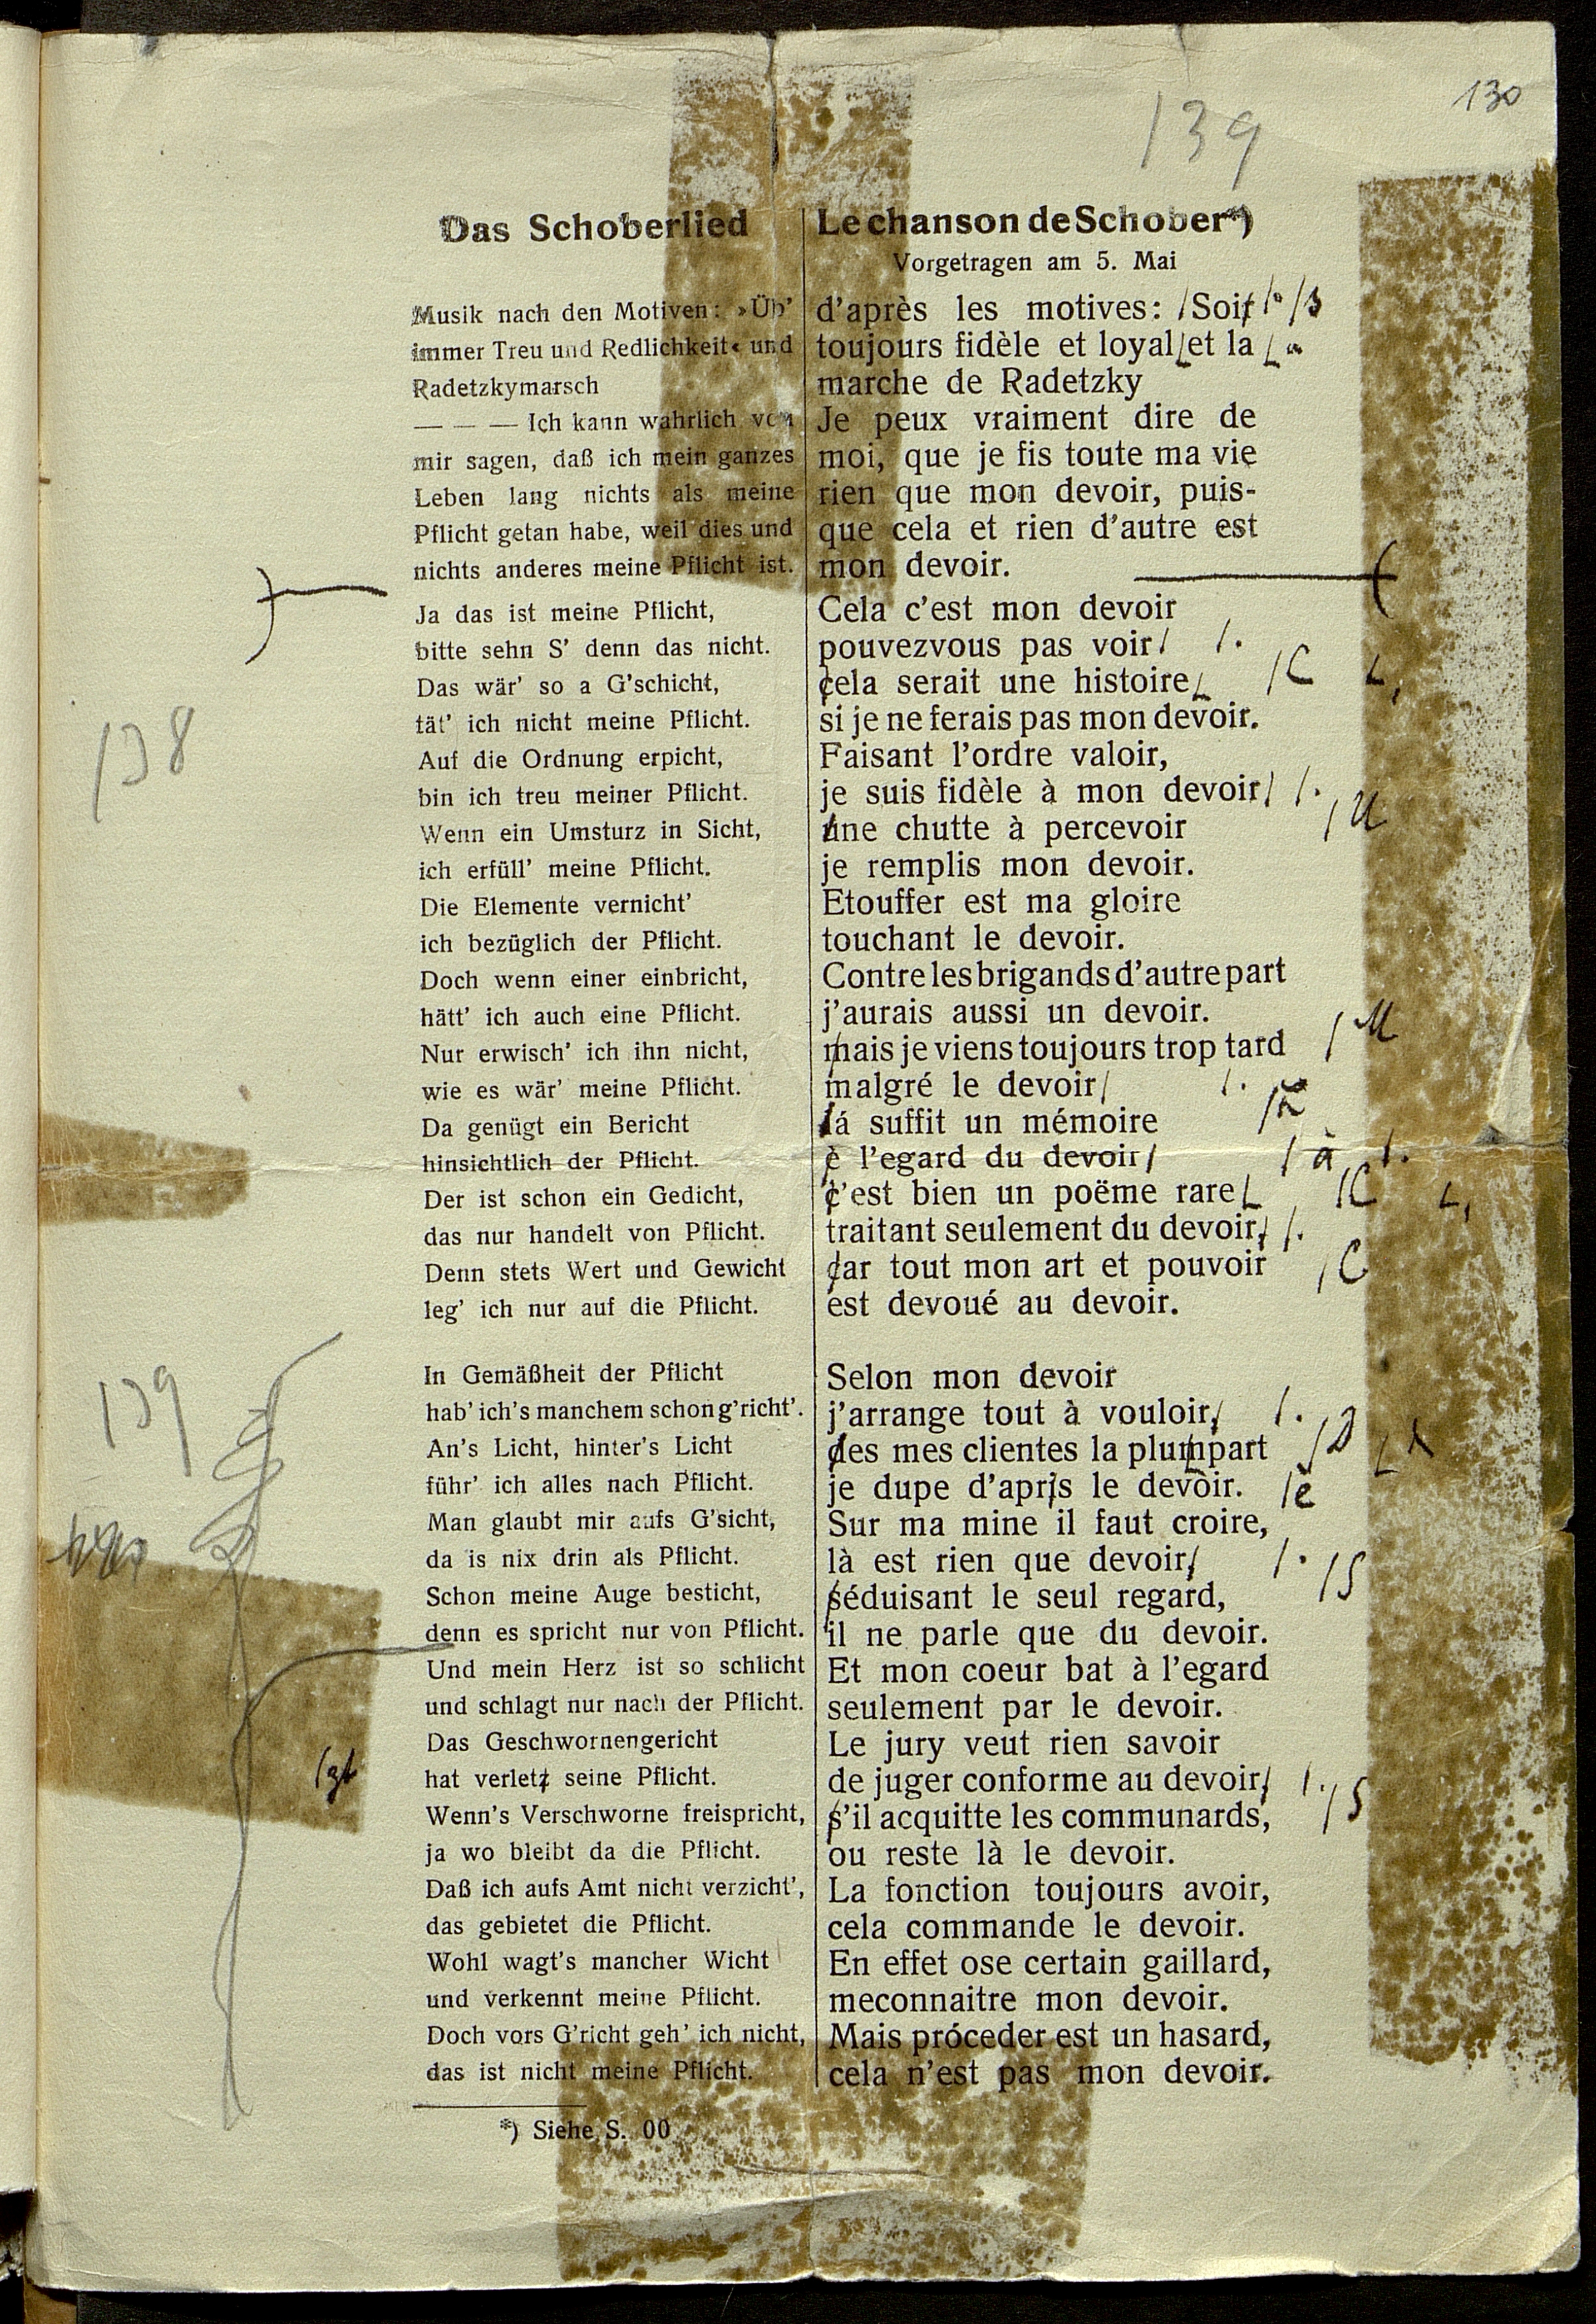 130
139
Das Schoberlied
Musik nach den Motiven: »Üb'
immer Treu und Redlichkeit« und
Radetzkymarsch
— — — Ich kann wahrlich von
mir sagen, daß ich mein ganzes
Leben lang nichts als meine
Pflicht getan habe, weil dies und
nichts anderes meine Pflicht ist.
Ja das ist meine Pflicht,
bitte sehn S' denn das nicht.
Das wär' so a G'schicht,
tät' ich nicht meine Pflicht.
Auf die Ordnung erpicht,
bin ich treu meiner Pflicht.
Wenn ein Umsturz in Sicht,
ich erfüll' meine Pflicht.
Die Elemente vernicht'
ich bezüglich der Pflicht.
Doch wenn einer einbricht,
hätt' ich auch eine Pflicht.
Nur erwisch' ich ihn nicht,
wie es wär' meine Pflicht.
Da genügt ein Bericht
hinsichtlich der Pflicht.
Der ist schon ein Gedicht,
das nur handelt von Pflicht.
Denn stets Wert und Gewicht
leg' ich nur auf die Pflicht.
In Gemäßheit der Pflicht
hab' ich's manchem schon g'richt'.
An's Licht, hinter's Licht
führ' ich alles nach Pflicht.
Man glaubt mir aufs G'sicht,
da is nix drin als Pflicht.
Schon meine Auge besticht,
denn es spricht nur von Pflicht.
Und mein Herz ist so schlicht
und schlagt nur nach der Pflicht.
Das Geschwornengericht
hat verletz seine Pflicht.
Wenn's Verschworne freispricht,
ja wo bleibt da die Pflicht.
Daß ich aufs Amt nicht verzicht',
das gebietet die Pflicht.
Wohl wagt's mancher Wicht
und verkennt meine Pflicht.
Doch vors G'richt geh' ich nicht,
das ist nicht meine Pflicht.
*) Siehe S. 00
Le chanson de Schober*)
Vorgetragen am 5. Mai
d'après les motives: Soit
toujours fidèle et loyal et la
marche de Radetzky
Je peux vraiment dire de
moi, que je fis toute ma vie
rien que mon devoir, puis-
que cela et rien d'autre est
mon devoir.
Cela c'est mon devoir
pouvezvous pas voir /.
cela serait une histoire /C
si je ne ferais pas mon devoir.
Faisant l'ordre valoir,
je suis fidèle à mon devoir /.
une chutte à percevoir /U
je remplis mon devoir.
Etouffer est ma gloire
touchant le devoir.
Contre les brigands d'autre part
j'aurais aussi un devoir.
mais je viens toujours trop tard /M
malgré le devoir /.
lá suffit un mémoire
è l'egard du devoir /à /.
c'est bien un poëme rare /C
traitant seulement du devoir, /.
car tout mon art et pouvoir /C
est devoué au devoir.
Selon mon devoir
j'arrange tout à vouloir, /.
des mes clientes la plumpart /D
je dupe d'apris le devoir. /è
Sur ma mine il faut croire,
là est rien que devoir, /.
séduisant le seul regard, /S
il ne parle que du devoir.
Et mon coeur bat à l'egard
seulement par le devoir.
Le jury veut rien savoir
de juger conforme au devoir, /.
s'il acquitte les communards, /S
ou reste là le devoir.
La fonction toujours avoir,
cela commande le devoir.
En effet ose certain gaillard,
meconnaitre mon devoir.
Mais próceder est un hasard,
cela n'est pas mon devoir.
138
139